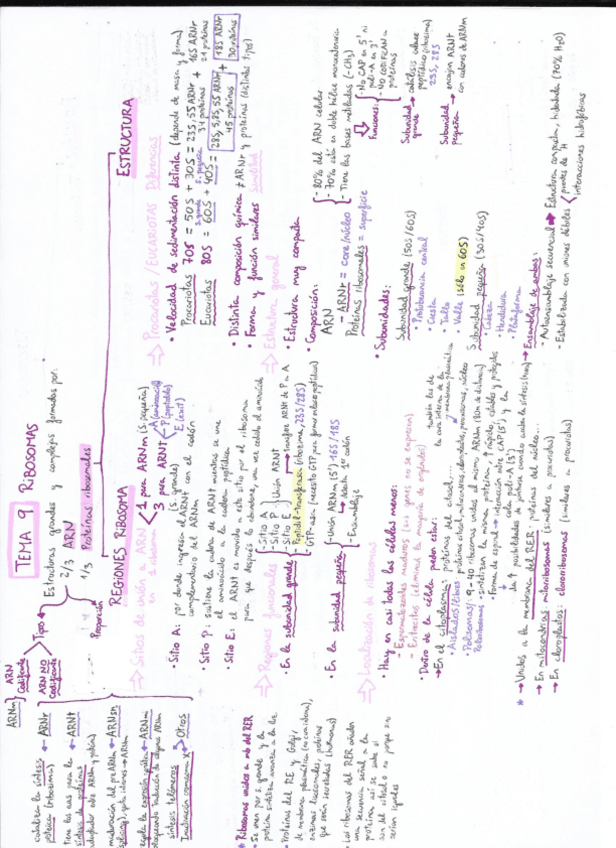 TEMA 9 RIBOSOMAS
Estructuras grandes y complejas formadas por:
2/3 ARN
1/3 Proteínas ribosomales
Proporción
Tipos
ARNm ARN Codificante
ARN NO Codificante
ARNr
cataliza la síntesis proteica (ribozima)
ARNt
síntesis de proteínas
(adaptador entre ARNm y proteína)
ARNsn
maduración del preARNm
(splicing), quita intrones → ARNm
ARNmi
regula la expresión génica
bloqueando traducción de algunos ARNm
Otros
síntesis telómeros
Inactivación cromosoma x
REGIONES RIBOSOMA
⇒ Sitios de unión a ARN en la subunidad
1 para ARNm (s. pequeña)
3 para ARNt (s. grande)
A (aminoacil)
P (peptidil)
E (exit)
• Sitio A: por donde ingresa el ARNt con el codón
complementario del ARNm
• Sitio P: sostiene la cadena de ARNt mientras se une
el aminoácido a la cadena peptídica
• Sitio E: el ARNt es movido a este sitio por el ribosoma
para que después lo abandone, una vez cedido el aminoácido
⇒ Regiones funcionales
• En la subunidad grande
- Sitio A
- Sitio P
- Sitio E
Unión ARNt
- Peptidil-transferasa (ribozima, 23S/28S) transfiere ARNt de P a A
- GTPasa (necesita GTP para formar enlace peptídico)
• En la subunidad pequeña
- Unión ARNm (5') 16S/18S
detecta 1er codón
- Ensamblaje
⇒ Localización de ribosomas
• Hay en casi todas las células menos:
- Espermatozoides maduros (sus genes no se expresan)
- Eritrocitos (elimina la mayoría de orgánulos)
• Dentro de la célula pueden estar:
→ En el citoplasma: proteínas del citosol,...
• Aislados/Libres
• Polisomas/Polirribosomas
- 9-40 ribosomas unidos al mismo ARNm
- sintetizan la misma proteína, ↑ rápidos, estables y protegidos
- Forma de espiral → interacción entre CAP (5') y la
cola poli-A (3')
* → Unidos a la membrana del RER: proteínas del núcleo...
→ En mitocondrias: mitorribosomas (similares a procariotas)
→ En cloroplastos: clororribosomas (similares a procariotas)
* Ribosomas unidos a mb del RER
• Se unen por s. grande y la
proteína sintetiza
• Proteínas del RE y Golgi,
de membrana plasmática
enzimas lisosomales, proteínas
que serán secretadas (hormonas)
• Los ribosomas del RER añaden
una secuencia señal a la
proteína, así se sabe si
son del citosol o no porque son
iguales
ESTRUCTURA
⇒ Procariotas/EUCARIOTAS Diferencias
• Velocidad de sedimentación distinta (depende de masa y forma)
Procariotas 70S = 50S + 30S = 23S, 5S ARNr + 16S ARNr
s. grande s. pequeña 34 proteínas 21 proteínas
Eucariotas 80S = 60S + 40S = 28S, 5,8S, 5S ARNr + 18S ARNr
45 proteínas 30 proteínas
• Distinta composición química ≠ ARNr y proteínas (distintos tipos)
• Forma y función similares Similitud
⇒ Estructura general
• Estructura muy compacta
• Composición:
ARN
- 80% del ARN celular
- 70% está en doble hélice monocatenaria
- Tiene las bases metiladas (-CH3)
- ARNr = core/núcleo
Proteínas ribosomales = superficie
- No CAP en 5', ni
poli-A en 3'
- NO CODIFICAN a
proteínas
Funciones:
Subunidad grande → catálisis enlace
peptídico (ribozima)
23S, 28S
Subunidad pequeña → encajan ARNt
con codones de ARNm
• Subunidades:
Subunidad grande (50S/60S)
• Protuberancia central
• Cresta
• Tallo
• Valle (sólo en 60S)
Subunidad pequeña (30S/40S)
• Cabeza
• Hendidura
• Plataforma
⇒ Ensamblaje de ambas:
• Autoensamblaje secuencial → Estructura compacta, hidratada (70% H2O)
• Estabilizada con uniones débiles
puentes de H
interacciones hidrofóbicas